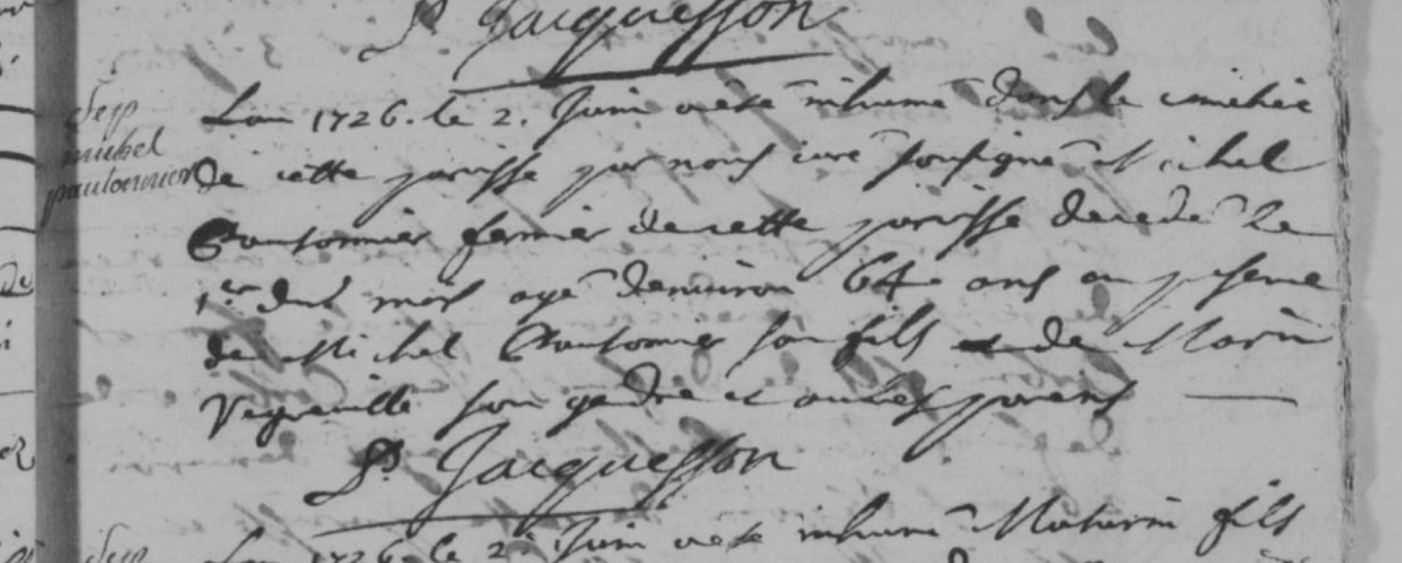 P. Jacquesson
Sep
michel
pautonnier
L'an 1726. le 2. Juin a esté inhumé dans le cimetiere
de cette paroisse par nous curé soussigné Michel
Pautonnier fermier de cette paroisse decedé le
1er dud mois agé denviron 64 ans en presence
de Michel Pautonnier son fils et de Marin
son gendre et autres parens
P. Jacquesson
Sep
L'an 1726. le 2 Juin a esté inhumé Mathurin fils